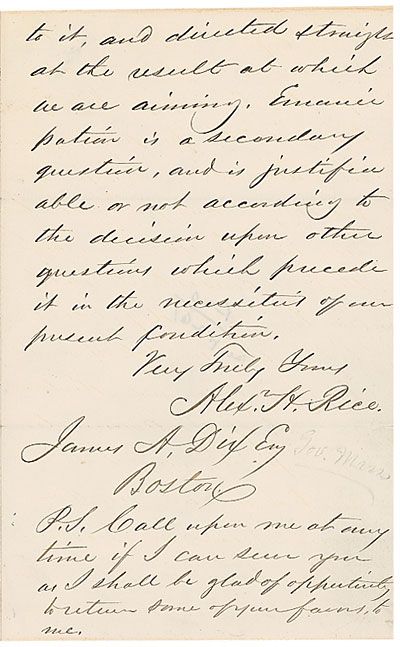 to it, and directed straight
at the result at which
we are aiming. Emanci
pation is a secondary
question, and is justifia
able or not according to
the decision upon other
questions which precede
it in the necessities of our
present condition.
Very Truly Yours
Alex. H. Rice.
James A. Dix Esq
Gov. Mass
Boston
P.S. Call upon me at any
time if I can serve you
as I shall be glad of opportunity
to return some of your favors, to
me.